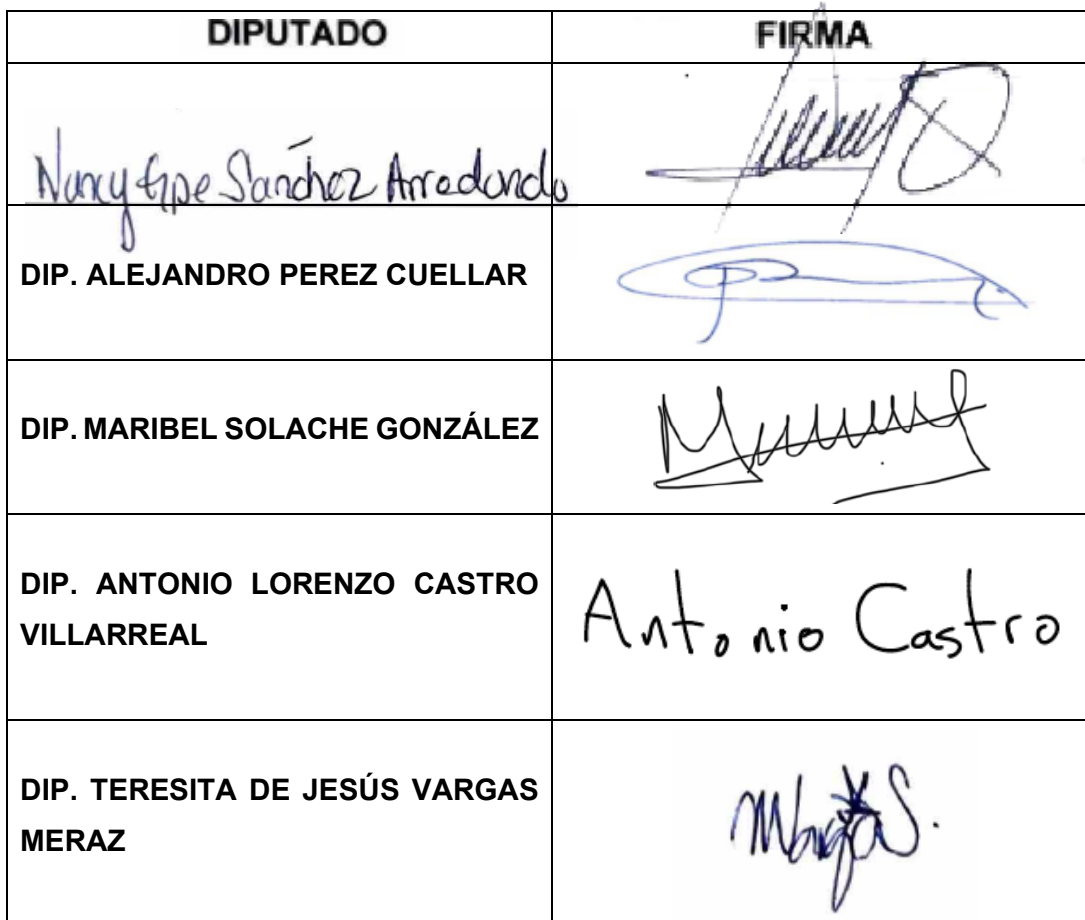 DIPUTADO FIRMA
Nancy Gpe Sanchez Arredondo
DIP. ALEJANDRO PEREZ CUELLAR
DIP. MARIBEL SOLACHE GONZÁLEZ
DIP. ANTONIO LORENZO CASTRO
VILLARREAL
Antonio Castro
DIP. TERESITA DE JESÚS VARGAS
MERAZ